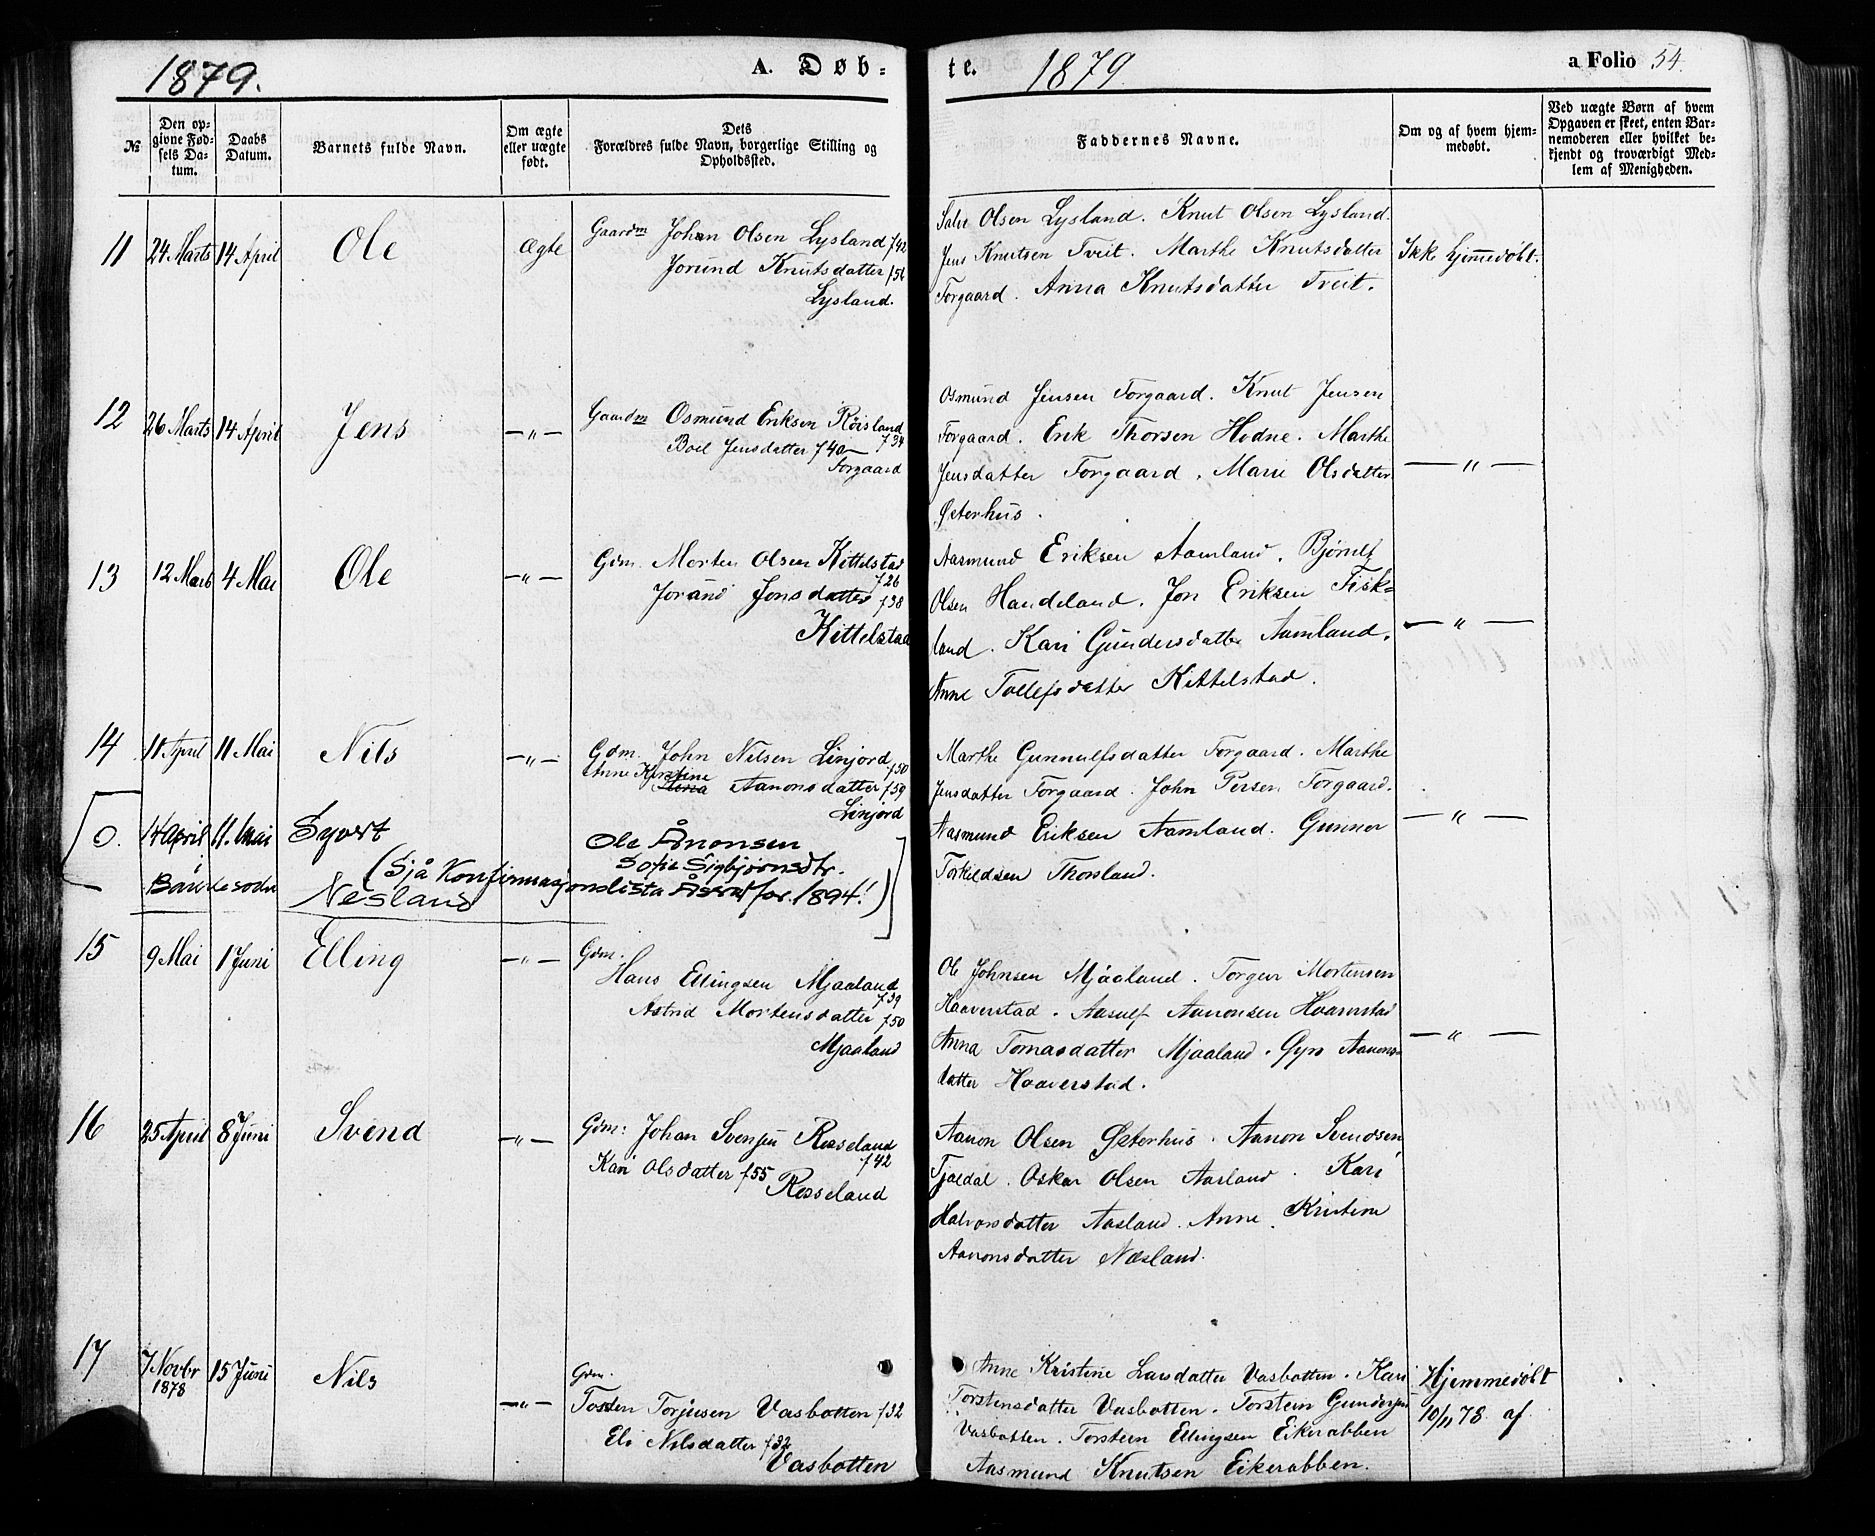 1879.
A. Døb-
te.
1879
a Folio 54.
№
Den op-
givne Fød-
sels Da-
tum.
Daabs
Datum.
Barnets fulde Navn.
Om ægte
eller uægte
født.
Dets
Forældres fulde Navn, borgerlige Stilling og
Opholdssted.
Faddernes Navne.
Om og af hvem hjem-
medøbt.
Ved uægte Børn af hvem
Opgaven er skeet, enten Bar-
nemoderen eller hvilket be-
kjendt og troværdigt Med-
lem af Menigheden.
11 24 Marts 14 April Ole Ægte
Gaardm Johan Olsen Lysland f42
Jorund Knutsdatter f56
Lysland.
Salve Olsen Lysland. Knut Olsen Lysland.
Jens Knutsen Tveit. Marthe Knutsdatter
Torgaard. Anna Knutsdatter Tveit.
Ikke hjemmedøbt.
12 26 Marts 14 April Jens —"—
Gaardm Osmund Eriksen Röisland
f34
Boel Jensdatter f40
Torgaard
Osmund Jensen Torgaard. Knut Jensen
Torgaard. Erik Thorsen Hodne. Marthe
Jensdatter Torgaard. Marie Olsdatter
Østerhus.
—"—
13 12 Marts 4 Mai Ole —"—
Gdm. Morten Olsen Kittelstad
f26
Jorand Jonsdatter f38
Kittelstad
Aasmund Eriksen Aamland. Bjørulf
Olsen Handeland. Jon Eriksen Fisk-
land. Kari Gundersdatter Aamland.
Anne Tollefsdatter Kittelstad.
—"—
14 11 April 11 Mai Nils —"—
Gdm. John Nilsen Linjord f50
Anne Kirstine
Aanonsdatter f59
Linjord
Marthe Gunnulfsdatter Torgaard. Marthe
Jensdatter Torgaard. John Persen Torgaard.
Aasmund Eriksen Aamland. Gunner
Torkildsen Thorsland.
—"—
0. 14 april 11. mai Syvert
Ole Ånonsen
Sofie Sigbjørnsdtr.
(Sjå Konfirmasjonslista Åseral for 1894!)
Nesland
15 9 Mai 1 Juni Elling —"—
Gdm.
Hans Ellingsen Mjaaland
f39
Astrid Mortensdatter f50
Mjaaland
Ole Johnsen Mjaaland. Torgeir Mortensen
Haaverstad. Aasulf Aanonsen Haaverstad
Anna Tomasdatter Mjaaland. Gyro Aanons-
datter Haaverstad.
—"—
16 25 April 8 Juni Svend —"—
Gdm: Johan Svensen Rosseland
f42
Kari Olsdatter f55
Rosseland
Aanon Olsen Østerhus. Aanon Svendsen
Tjaldal. Oskar Olsen Aasland. Kari
Halvorsdatter Aasland. Anne Kristine
Aanonsdatter Næsland.
17 7 Novbr 15 Juni Nils —"—
1878
Gdm.
Tosten Torjusen Vasbotten f32
Eli Nilsdatter f32
Vasbotten
Anne Kristine Larsdatter Vasbotten. Kari
Torstensdatter Vasbotten. Torstein Gundersen
Vasbotten. Torstein Ellingsen Eikerabben
Aasmund Knutsen Eikerabben.
Hjemmedøbt
10/11 78 af